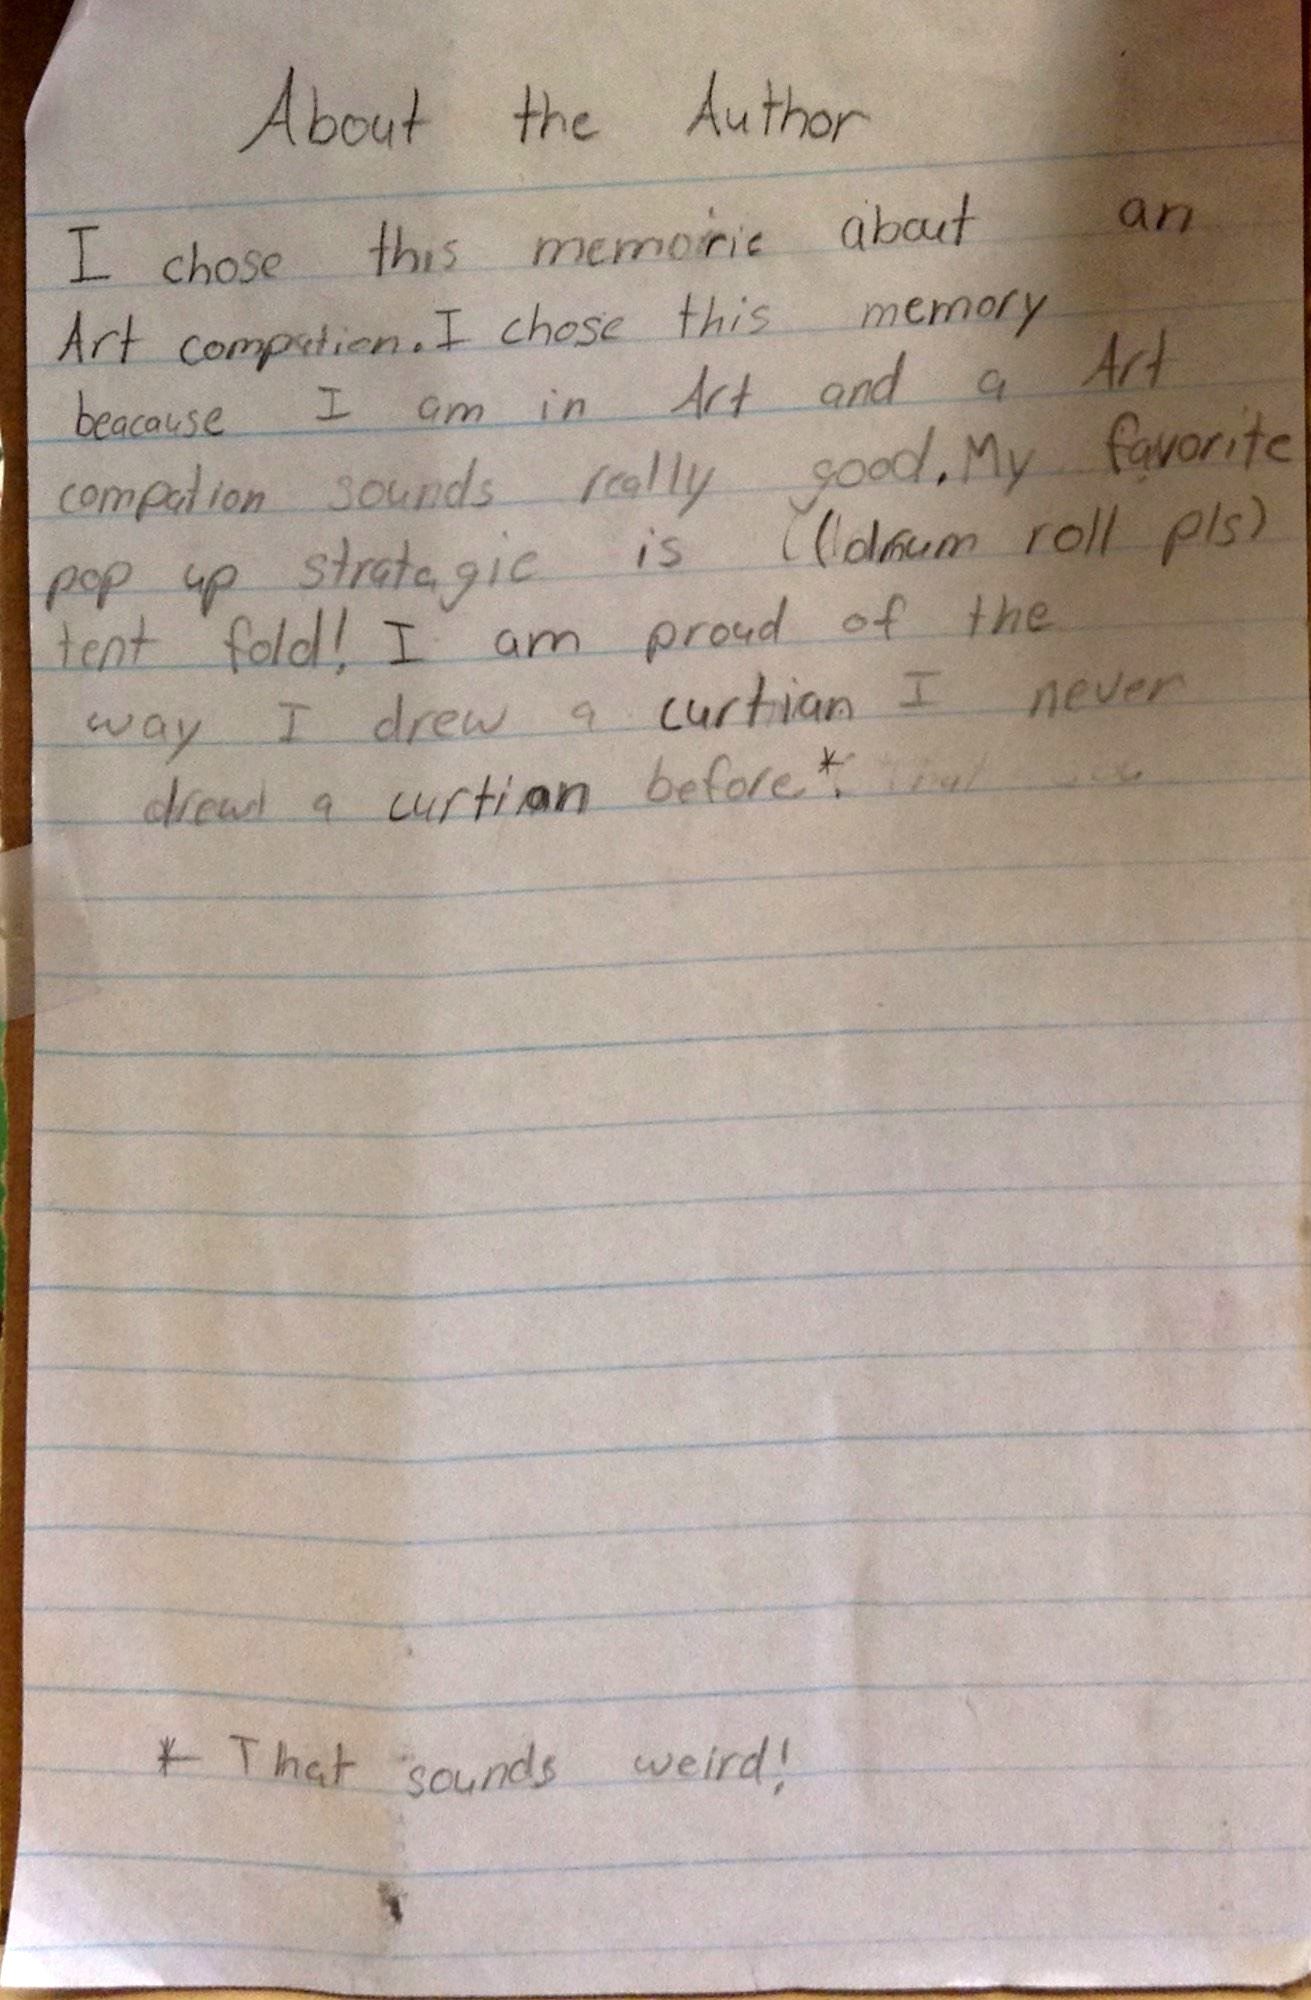 About the Author
I chose this memorie about an
Art compation. I chose this memory
beacause I am in Art and a Art
compation sounds really good. My favorite
pop up stratagie is ((drum roll pls)
tent fold! I am proud of the
way I drew a curtian I never
drew a curtian before*.
* That sounds weird!